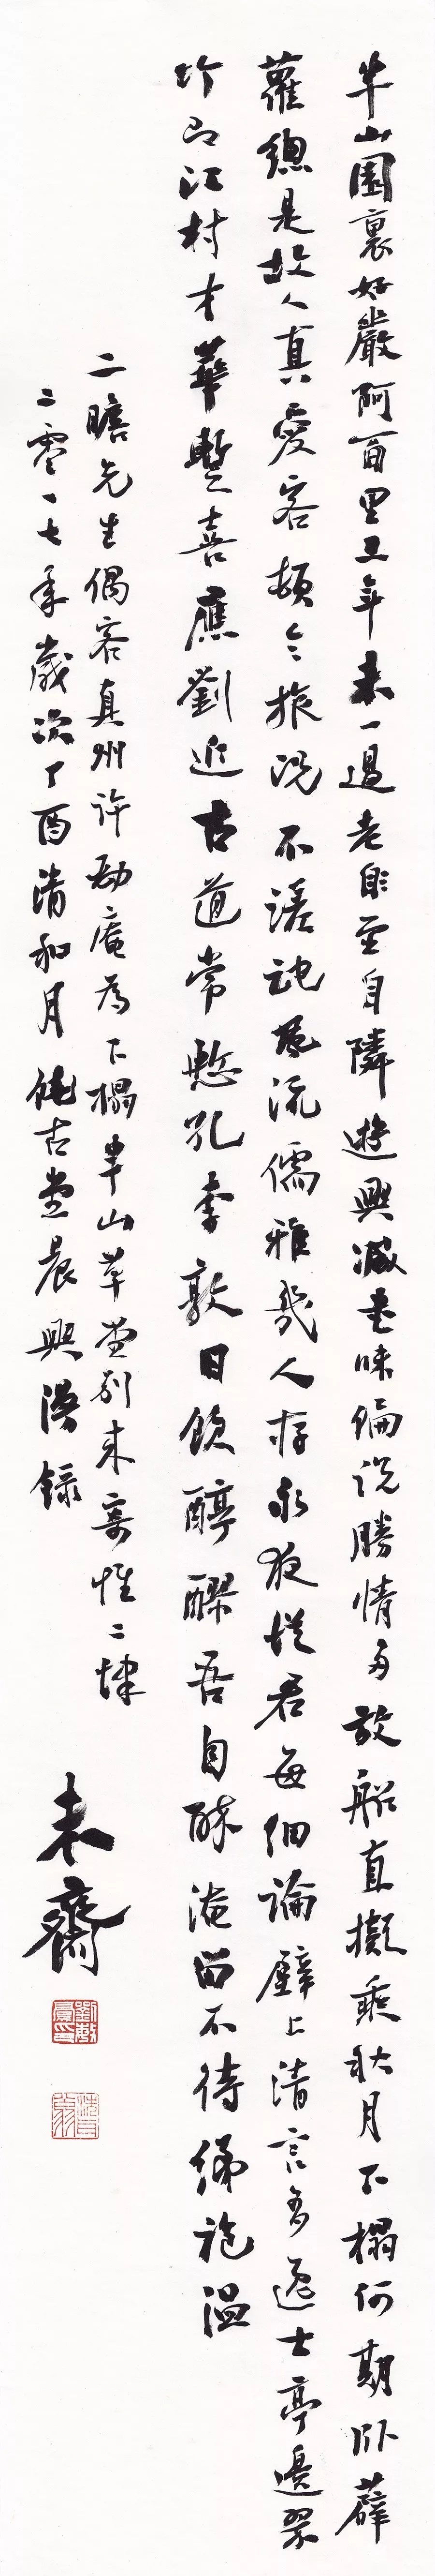 半山園裏好巖阿百里五年未一過老與至自隣遊興減貧味偏説勝情多放船直擬乘秋月下榻何期臥薜
蘿總是故人真愛客頻令旅況不蹉跎風流儒雅幾人存永夜從君每細論壁上清言多逸士亭邊翠
竹即江村才華暫喜應劉近古道常慙孔李敦日飲醇醪吾自醉淹留不待綈袍温
二瞻先生偶客真州許劬庵為下榻半山草堂別來寄惟二律
二零一七年歲次丁酉清和月饒古堂晨興漫録
未齋